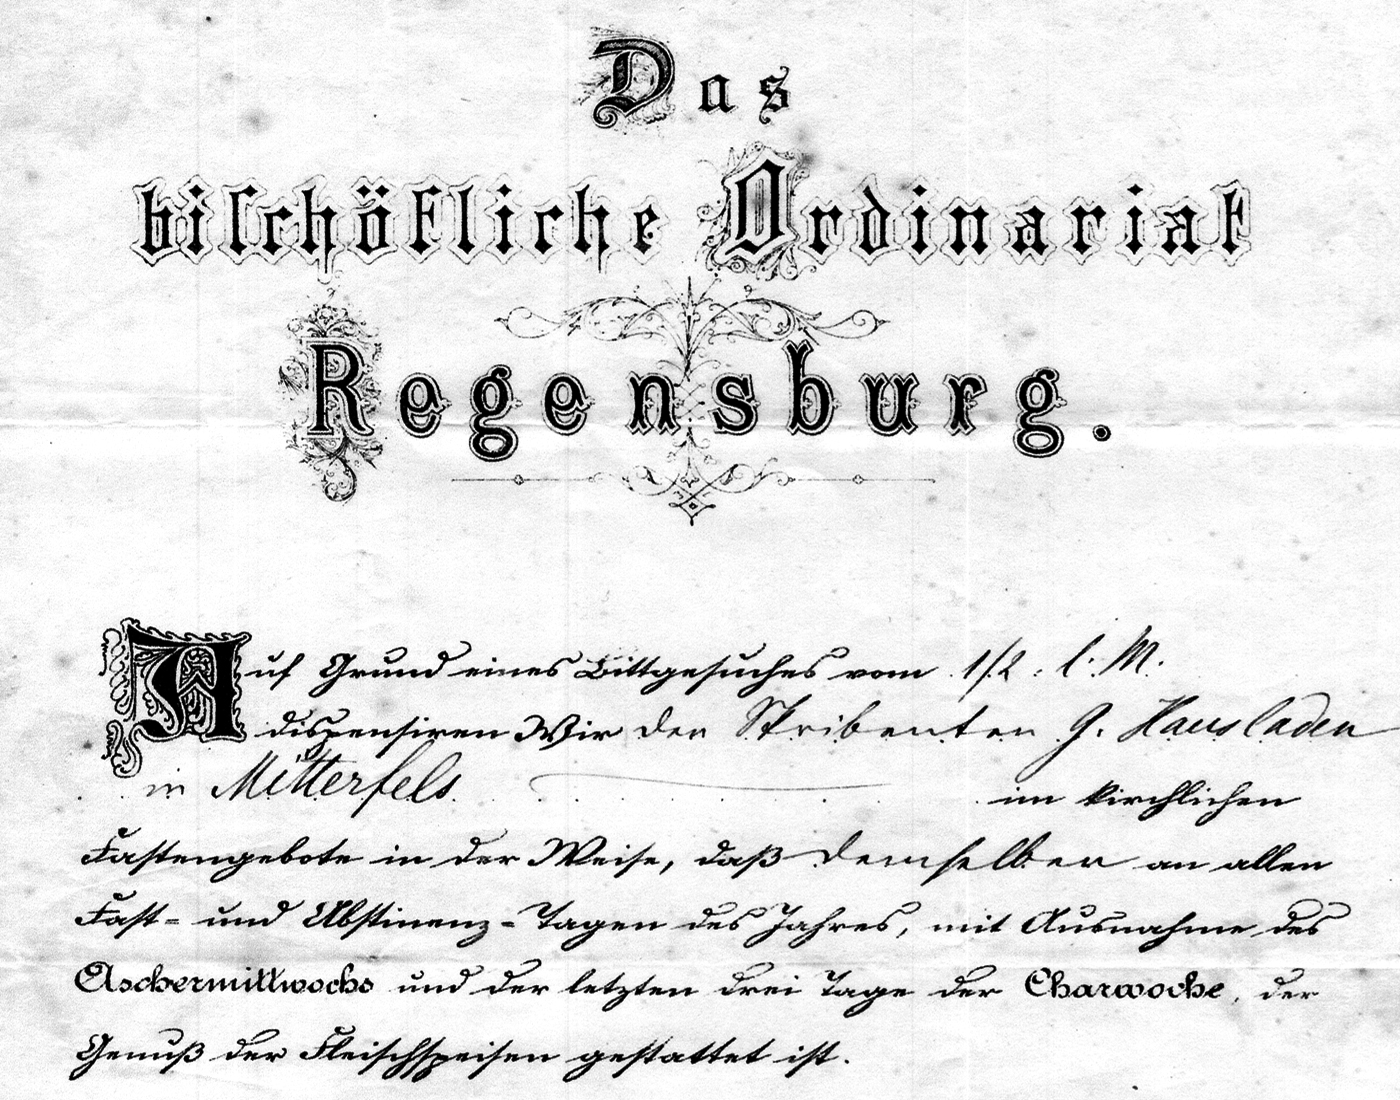 Das
bischöfliche Ordinariat
Regensburg.
Auf Grund eines Bittgesuches vom 1/2. l. M.
dispensiren Wir den Skribenten G. Hausladen
in Mitterfels im kirchlichen
Fastengebote in der Weise, daß demselben an allen
Fast- und Abstinenz-Tagen des Jahres, mit Ausnahme des
Aschermittwochs und der letzten drei Tage der Charwoche, der
Genuß der Fleischspeisen gestattet ist.